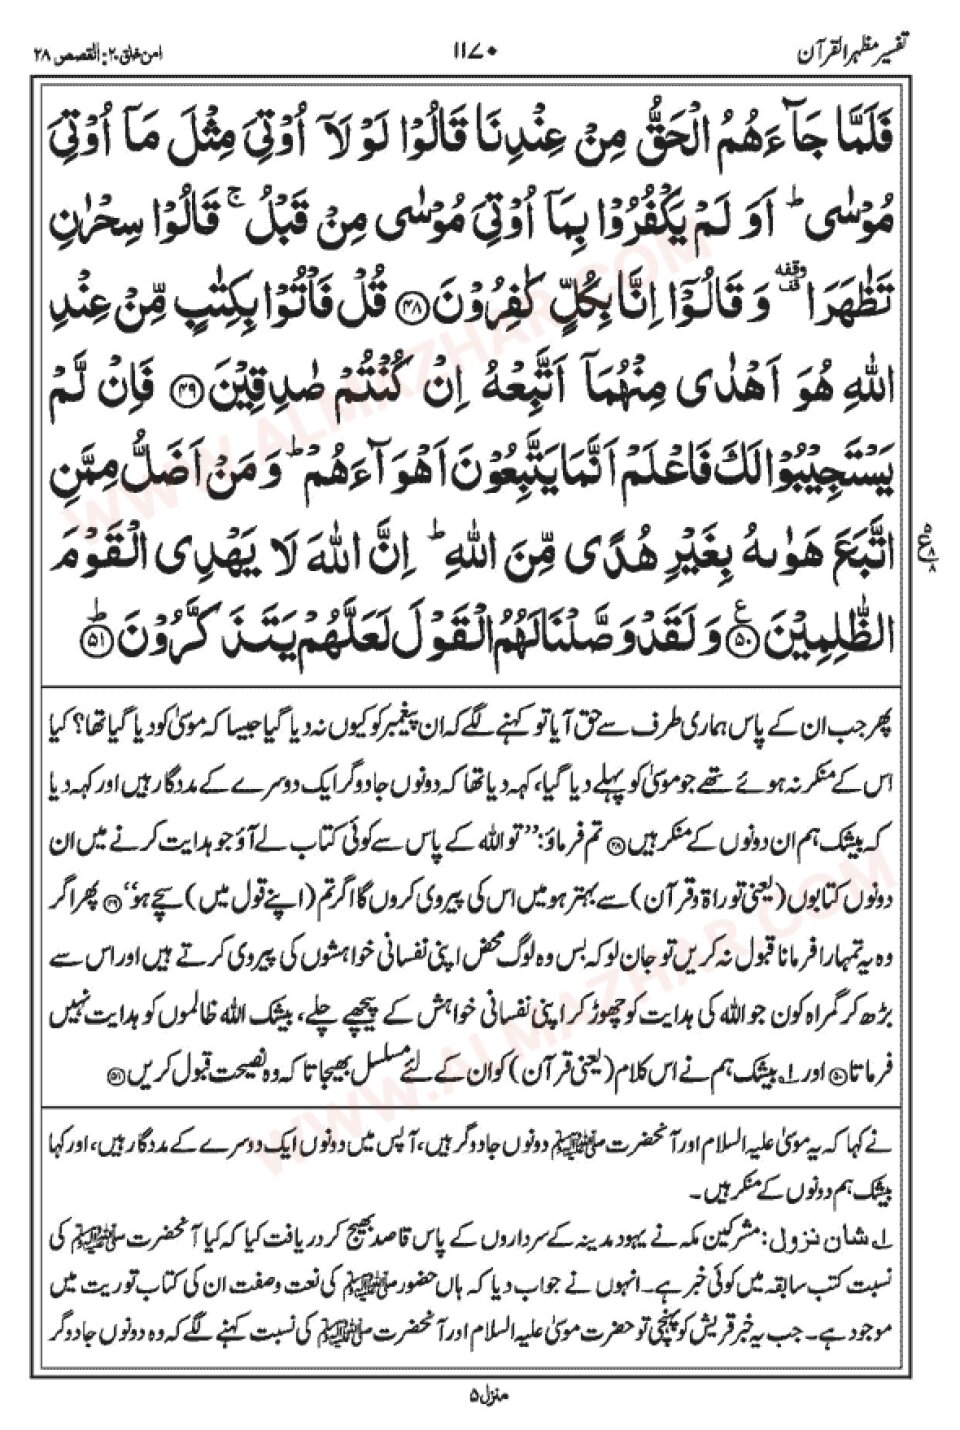 تفسیر مظہر القرآن
۱۱۷۰
امن خلق ۲۰: القصص ۲۸
فَلَمَّا جَآءَهُمُ الْحَقُّ مِنْ عِنْدِنَا قَالُوْا لَوْ لَاۤ اُوْتِیَ مِثْلَ مَاۤ اُوْتِیَ
مُوْسٰی ؕ اَوَ لَمْ یَكْفُرُوْا بِمَاۤ اُوْتِیَ مُوْسٰی مِنْ قَبْلُ ۚ قَالُوْا سِحْرٰنِ
تَظٰهَرَا وقفه وَ قَالُوْۤا اِنَّا بِكُلٍّ كٰفِرُوْنَ ﴿۴۸﴾ قُلْ فَاْتُوْا بِكِتٰبٍ مِّنْ عِنْدِ
اللهِ هُوَ اَهْدٰی مِنْهُمَاۤ اَتَّبِعْهُ اِنْ كُنْتُمْ صٰدِقِیْنَ ﴿۴۹﴾ فَاِنْ لَّمْ
یَسْتَجِیْبُوْا لَكَ فَاعْلَمْ اَنَّمَا یَتَّبِعُوْنَ اَهْوَآءَهُمْ ؕ وَ مَنْ اَضَلُّ مِمَّنِ
اتَّبَعَ هَوٰىهُ بِغَیْرِ هُدًی مِّنَ اللهِ ؕ اِنَّ اللهَ لَا یَهْدِی الْقَوْمَ
الظّٰلِمِیْنَ ﴿۵۰﴾ وَ لَقَدْ وَصَّلْنَا لَهُمُ الْقَوْلَ لَعَلَّهُمْ یَتَذَكَّرُوْنَ ﴿۵۱﴾ؕ
پھر جب ان کے پاس ہماری طرف سے حق آیا تو کہنے لگے کہ ان پیغمبر کو کیوں نہ دیا گیا جیسا کہ موسیٰ کو دیا گیا تھا؟ کیا
اس کے منکر نہ ہوئے تھے جو موسیٰ کو پہلے دیا گیا، کہہ دیا تھا کہ دونوں جادوگر ایک دوسرے کے مددگار ہیں اور کہہ دیا
کہ بیشک ہم ان دونوں کے منکر ہیں ﴿۴۸﴾ تم فرماؤ: ”تو اللہ کے پاس سے کوئی کتاب لے آؤ جو ہدایت کرنے میں ان
دونوں کتابوں (یعنی توراۃ و قرآن) سے بہتر ہو میں اس کی پیروی کروں گا اگر تم (اپنے قول میں) سچے ہو“ ﴿۴۹﴾ پھر اگر
وہ یہ تمہارا فرمانا قبول نہ کریں تو جان لو کہ بس وہ لوگ محض اپنی نفسانی خواہشوں کی پیروی کرتے ہیں اور اس سے
بڑھ کر گمراہ کون جو اللہ کی ہدایت کو چھوڑ کر اپنی نفسانی خواہش کے پیچھے چلے، بیشک اللہ ظالموں کو ہدایت نہیں
فرماتا ﴿۵۰﴾ اور ۱؎ بیشک ہم نے اس کلام (یعنی قرآن) کو ان کے لئے مسلسل بھیجا تاکہ وہ نصیحت قبول کریں ﴿۵۱﴾
نے کہا کہ یہ موسیٰ علیہ السلام اور آنحضرت ﷺ دونوں جادوگر ہیں، آپس میں دونوں ایک دوسرے کے مددگار ہیں، اور کہا
بیشک ہم دونوں کے منکر ہیں۔
۱؎ شان نزول: مشرکین مکہ نے یہود مدینہ کے سرداروں کے پاس قاصد بھیج کر دریافت کیا کہ کیا آنحضرت ﷺ کی
نسبت کتب سابقہ میں کوئی خبر ہے۔ انہوں نے جواب دیا کہ ہاں حضور ﷺ کی نعت و صفت ان کی کتاب توریت میں
موجود ہے۔ جب یہ خبر قریش کو پہنچی تو حضرت موسیٰ علیہ السلام اور آنحضرت ﷺ کی نسبت کہنے لگے کہ وہ دونوں جادوگر
منزل ۵
WWW.ALMAZHAR.COM
WWW.ALMAZHAR.COM